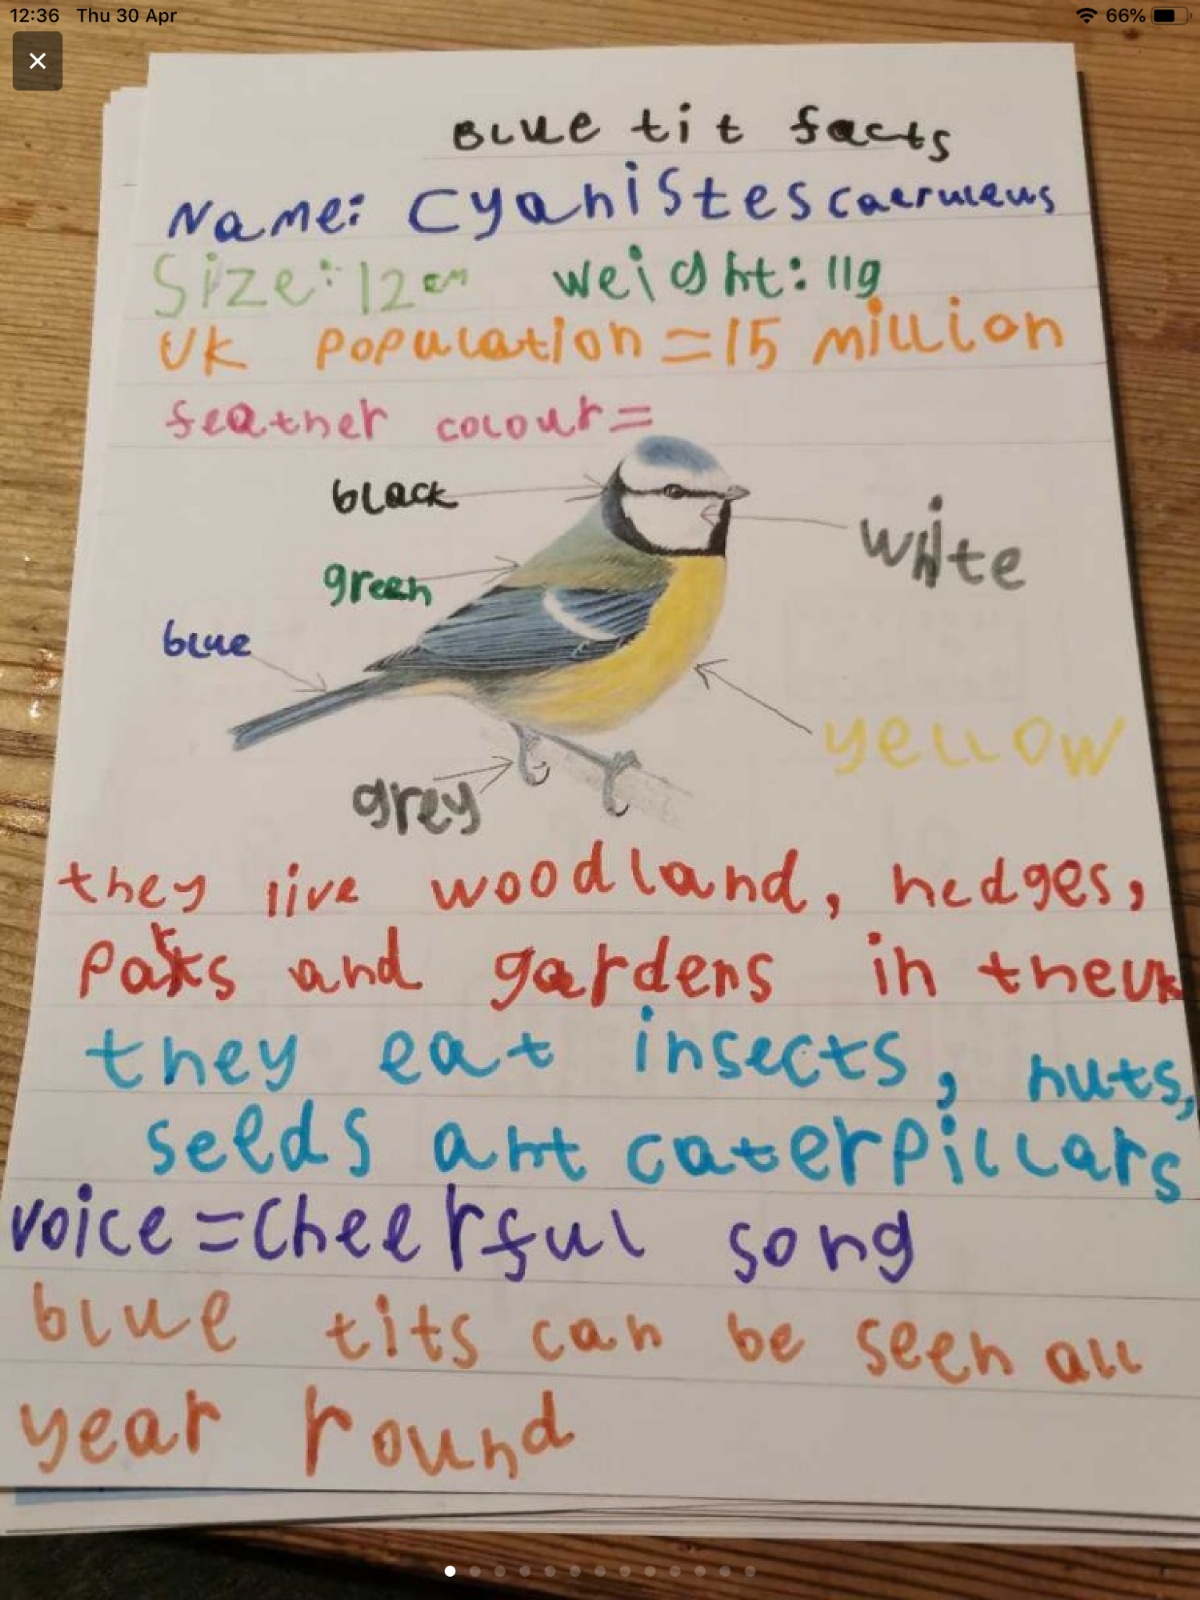 12:36 Thu 30 Apr 66%
Blue tit facts
Name: Cyanistes caeruleus
Size: 12cm weight: 11g
UK population = 15 million
feather colour =
black
white
green
blue
yellow
grey
they live woodland, hedges,
Parks and gardens in the UK
they eat insects, nuts,
seeds ant caterpillars
voice = cheerful song
blue tits can be seen all
year round